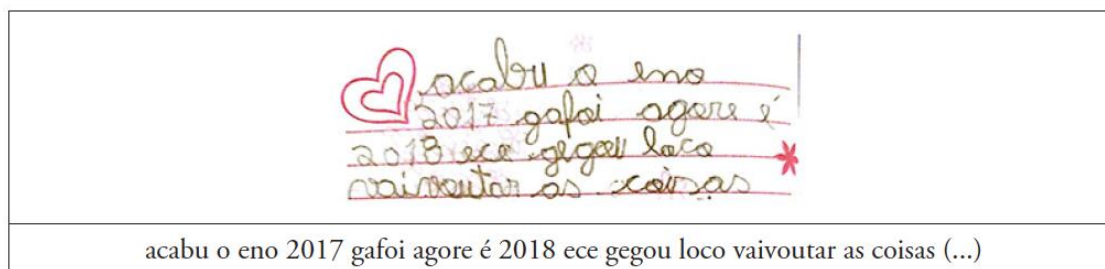 acabu o eno
2017 gafoi agore é
2018 ece gegou loco
vaivoutar as coisas
acabu o eno 2017 gafoi agore é 2018 ece gegou loco vaivoutar as coisas (...)